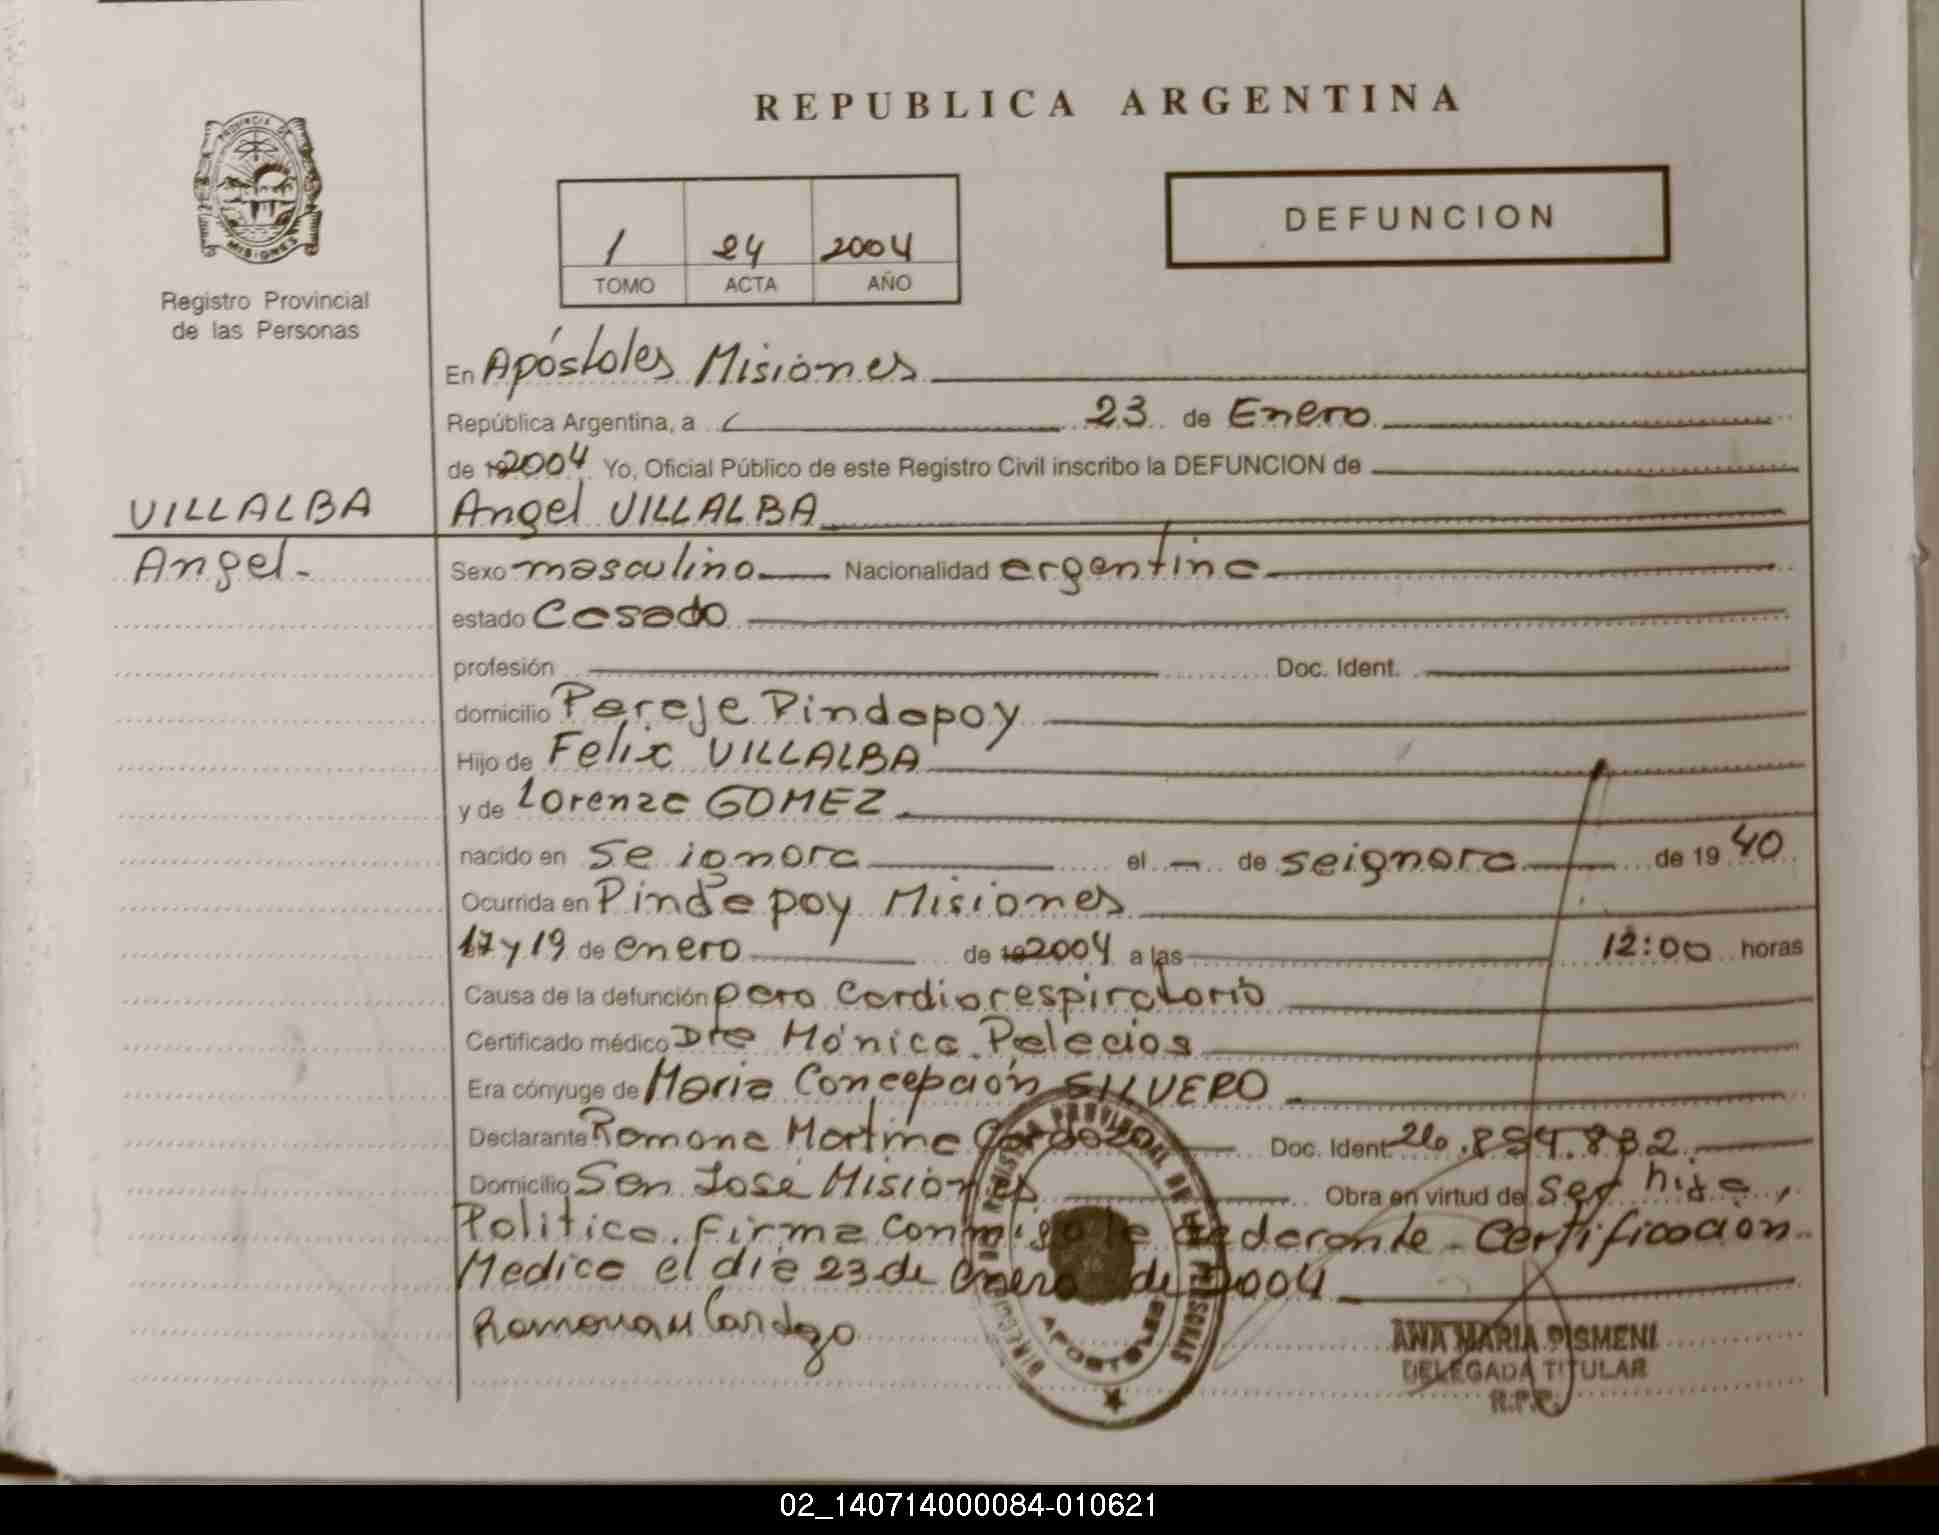 REPUBLICA ARGENTINA
PROVINCIA DE
MISIONES
Registro Provincial
de las Personas
1 24 2004
TOMO ACTA AÑO
DEFUNCION
En Apóstoles Misiones
República Argentina, a 23 de Enero
de 192004 Yo, Oficial Público de este Registro Civil inscribo la DEFUNCION de
VILLALBA
Angel.
Angel VILLALBA
Sexo masculino Nacionalidad argentina
estado Casado
profesión Doc. Ident.
domicilio Paraje Pindapoy
Hijo de Felix VILLALBA
y de Lorenza GOMEZ
nacido en Se ignora el — de seignora de 19 40
Ocurrida en Pindapoy Misiones
17 y 19 de enero de 192004 a las 12:00 horas
Causa de la defunción paro Cardiorespiratorio
Certificado médico Dra Mónica Palacios
Era cónyuge de Maria Concepción SILVERO
Declarante Ramona Martina Cardozo Doc. Ident. 26.894.832.
Domicilio San José Misiones Obra en virtud de Ser hija,
Politica. firma conmigo la declarante - Certificación
Medica el dia 23 de enero de 2004
Ramona M Cardozo
APOSTOLES
ANA MARIA PISMENI
DELEGADA TITULAR
R.P.P.
02_140714000084-010621